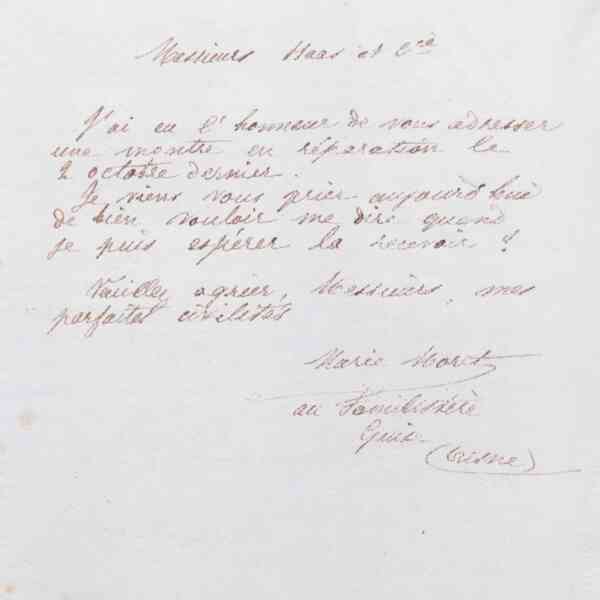 Messieurs Haas et Cie
J'ai eu l'honneur de vous adresser
une montre en réparation le
2 octobre dernier.
Je viens vous prier aujourd'hui
de bien vouloir me dire quand
je puis espérer la recevoir ?
Veuillez agréer, Messieurs, mes
parfaites civilités
Marie Moret
au Familistère
Guise
(Aisne)